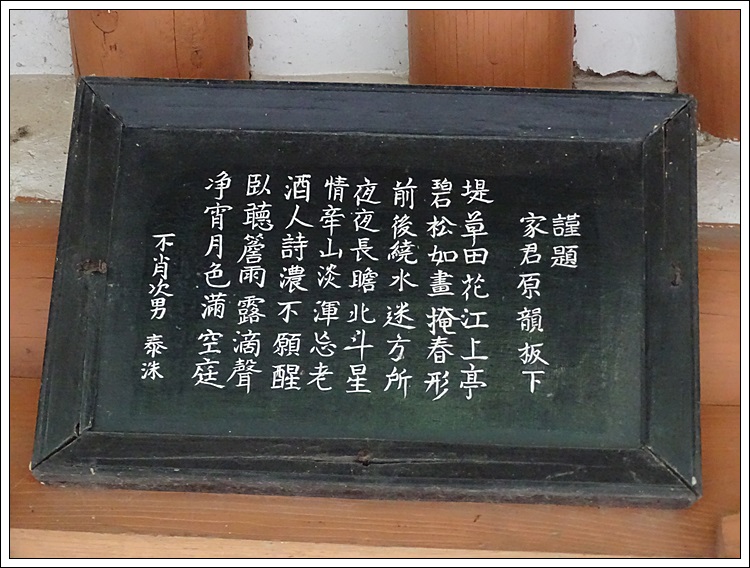 謹題
家君原韻板下
堤草田花江上亭
碧松如畫掩春形
前後繞水迷方所
夜夜長瞻北斗星
情牽山淡渾忘老
酒人詩濃不願醒
臥聽簷雨露滴聲
净宵月色滿空庭
不肖次男 泰洙